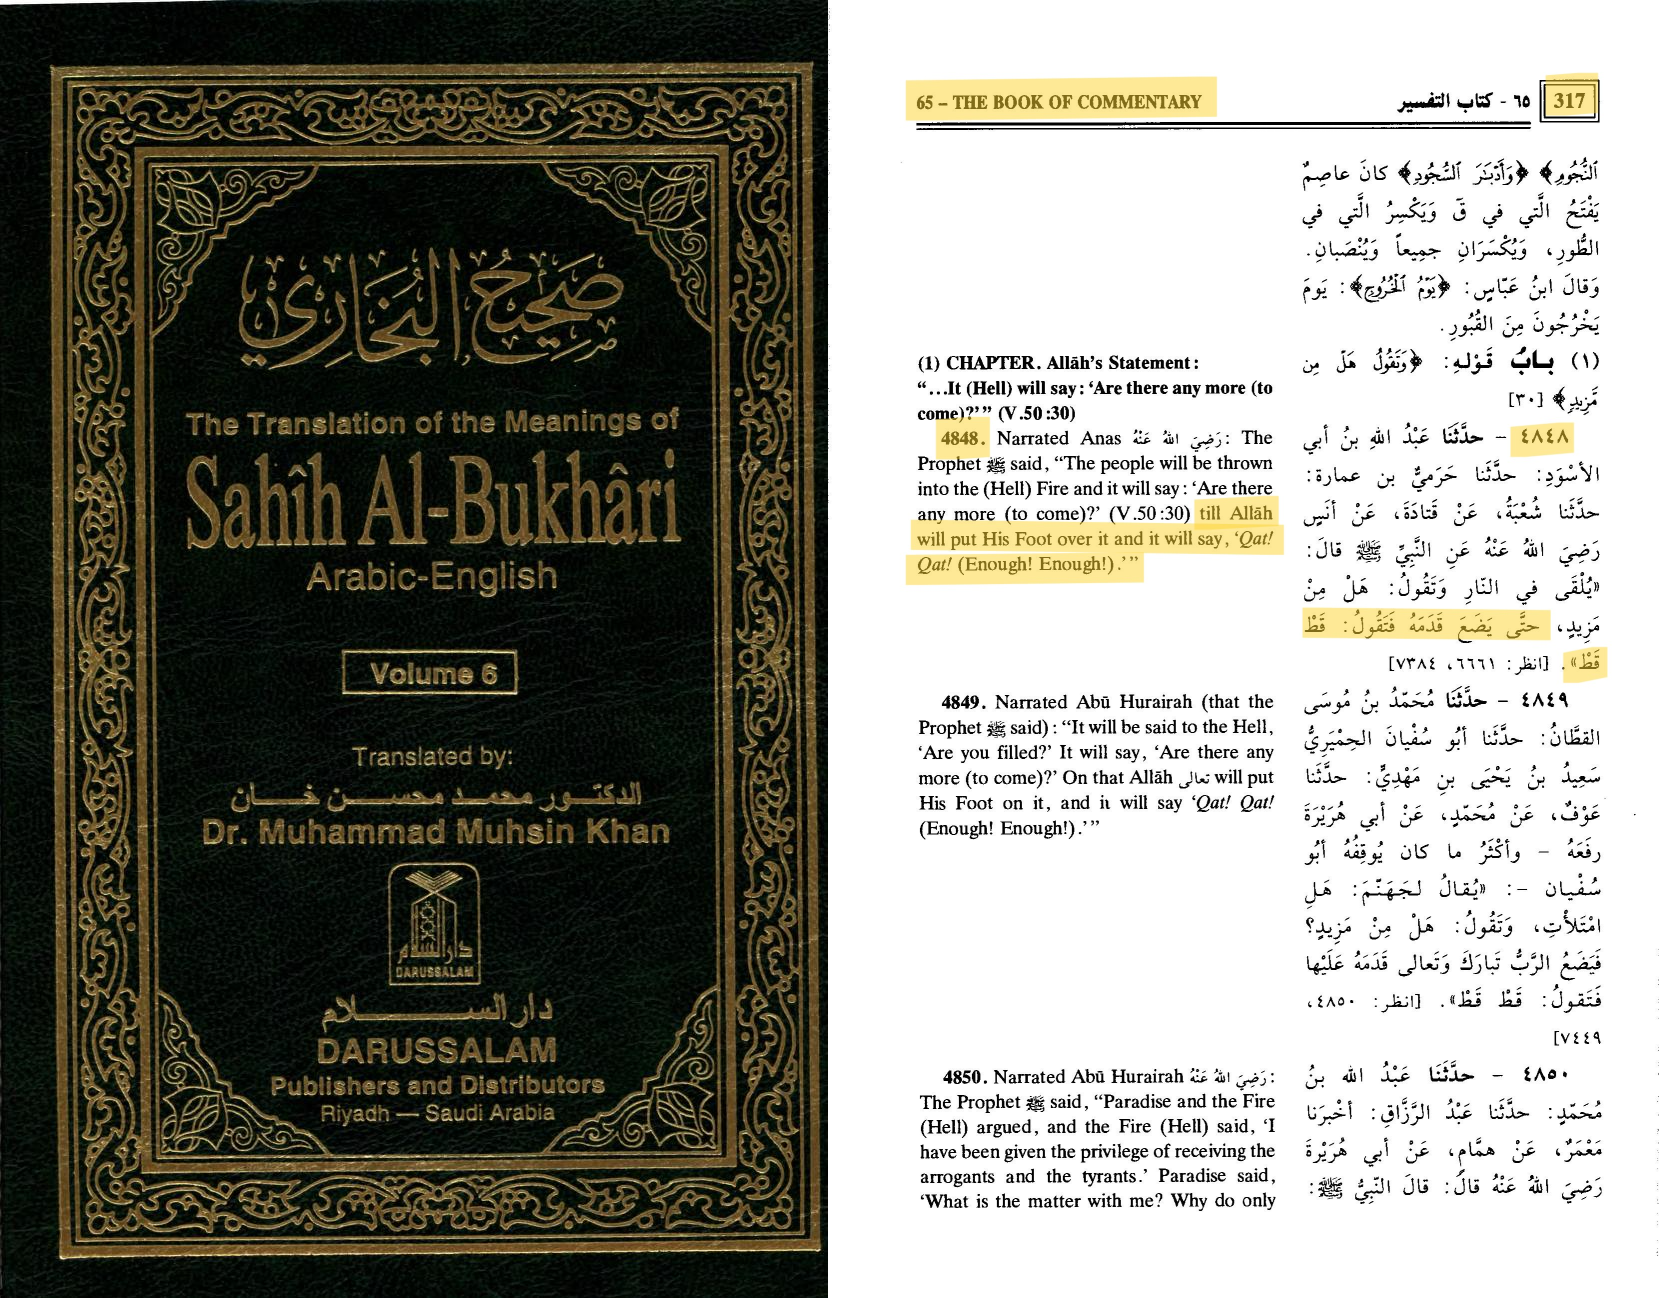 صحيح البخاري
The Translation of the Meanings of
Sahîh Al-Bukhâri
Arabic-English
Volume 6
Translated by:
الدكتور محمد محسن خان
Dr. Muhammad Muhsin Khan
دار السلام
DARUSSALAM
دار السلام
DARUSSALAM
Publishers and Distributors
Riyadh — Saudi Arabia
65 – THE BOOK OF COMMENTARY
٦٥ - كتاب التفسير
317
(1) CHAPTER. Allāh's Statement:
“...It (Hell) will say: ‘Are there any more (to
come)?’” (V.50:30)
4848. Narrated Anas رَضِيَ اللهُ عَنْهُ: The
Prophet ﷺ said, “The people will be thrown
into the (Hell) Fire and it will say: ‘Are there
any more (to come)?’ (V.50:30) till Allāh
will put His Foot over it and it will say, ‘Qat!
Qat! (Enough! Enough!).’”
4849. Narrated Abū Hurairah (that the
Prophet ﷺ said): “It will be said to the Hell,
‘Are you filled?’ It will say, ‘Are there any
more (to come)?’ On that Allāh تعالى will put
His Foot on it, and it will say ‘Qat! Qat!
(Enough! Enough!).’”
4850. Narrated Abū Hurairah رَضِيَ اللهُ عَنْهُ:
The Prophet ﷺ said, “Paradise and the Fire
(Hell) argued, and the Fire (Hell) said, ‘I
have been given the privilege of receiving the
arrogants and the tyrants.’ Paradise said,
‘What is the matter with me? Why do only
النُّجُومِ﴾ ﴿وَأَدْبَـٰرَ السُّجُودِ﴾ كانَ عاصِمٌ
يَفْتَحُ الَّتي في قٓ وَيَكْسِرُ الَّتي في
الطُّورِ، وَيُكْسَرَانِ جمِيعاً وَيُنْصَبانِ.
وَقالَ ابنُ عَبَّاسٍ: ﴿يَوْمُ الْخُرُوجِ﴾: يَومَ
يَخْرُجُونَ مِنَ القُبُورِ.
(١) بابُ قَوْلِهِ: ﴿وَتَقُولُ هَلْ مِن
مَّزِيدٍ﴾ [٣٠]
٤٨٤٨ – حدَّثَنَا عَبْدُ اللهِ بنُ أبي
الأسْوَدِ: حدَّثَنا حَرَميُّ بن عمارة:
حدَّثَنا شُعْبَةُ، عَنْ قَتادَةَ، عَنْ أنَسٍ
رَضِيَ اللهُ عَنْهُ عَنِ النَّبِيِّ ﷺ قالَ:
«يُلْقَى في النّارِ وَتَقُولُ: هَلْ مِنْ
مَزِيدٍ، حتَّى يَضَعَ قَدَمَهُ فَتَقُولُ: قَطْ
قَطْ». [انظر: ٦٦٦١، ٧٣٨٤]
٤٨٤٩ – حدَّثَنَا مُحَمَّدُ بنُ مُوسَى
القَطَّانُ: حدَّثَنا أبُو سُفْيانَ الحِمْيَرِيُّ
سَعِيدُ بنُ يَحْيَى بنِ مَهْدِيٍّ: حدَّثَنا
عَوْفٌ، عَنْ مُحَمَّدٍ، عَنْ أبي هُرَيْرَةَ
رفَعَهُ – وأكْثَرُ ما كان يُوقِفُهُ أبُو
سُفْيان –: «يُقالُ لجَهَنَّمَ: هَلِ
امْتَلأْتِ، وَتَقُولُ: هَلْ مِنْ مَزِيدٍ؟
فَيَضَعُ الرَّبُّ تَبارَكَ وَتَعالى قَدَمَهُ عَلَيْها
فَتَقولُ: قَطْ قَطْ». [انظر: ٤٨٥٠،
٧٤٤٩]
٤٨٥٠ – حدَّثَنَا عَبْدُ الله بنُ
مُحَمَّدٍ: حدَّثَنا عَبْدُ الرَّزَّاقِ: أخْبرَنا
مَعْمَرٌ، عَنْ همَّامٍ، عَنْ أبي هُرَيْرةَ
رَضِيَ اللهُ عَنْهُ قالَ: قالَ النَّبِيُّ ﷺ: